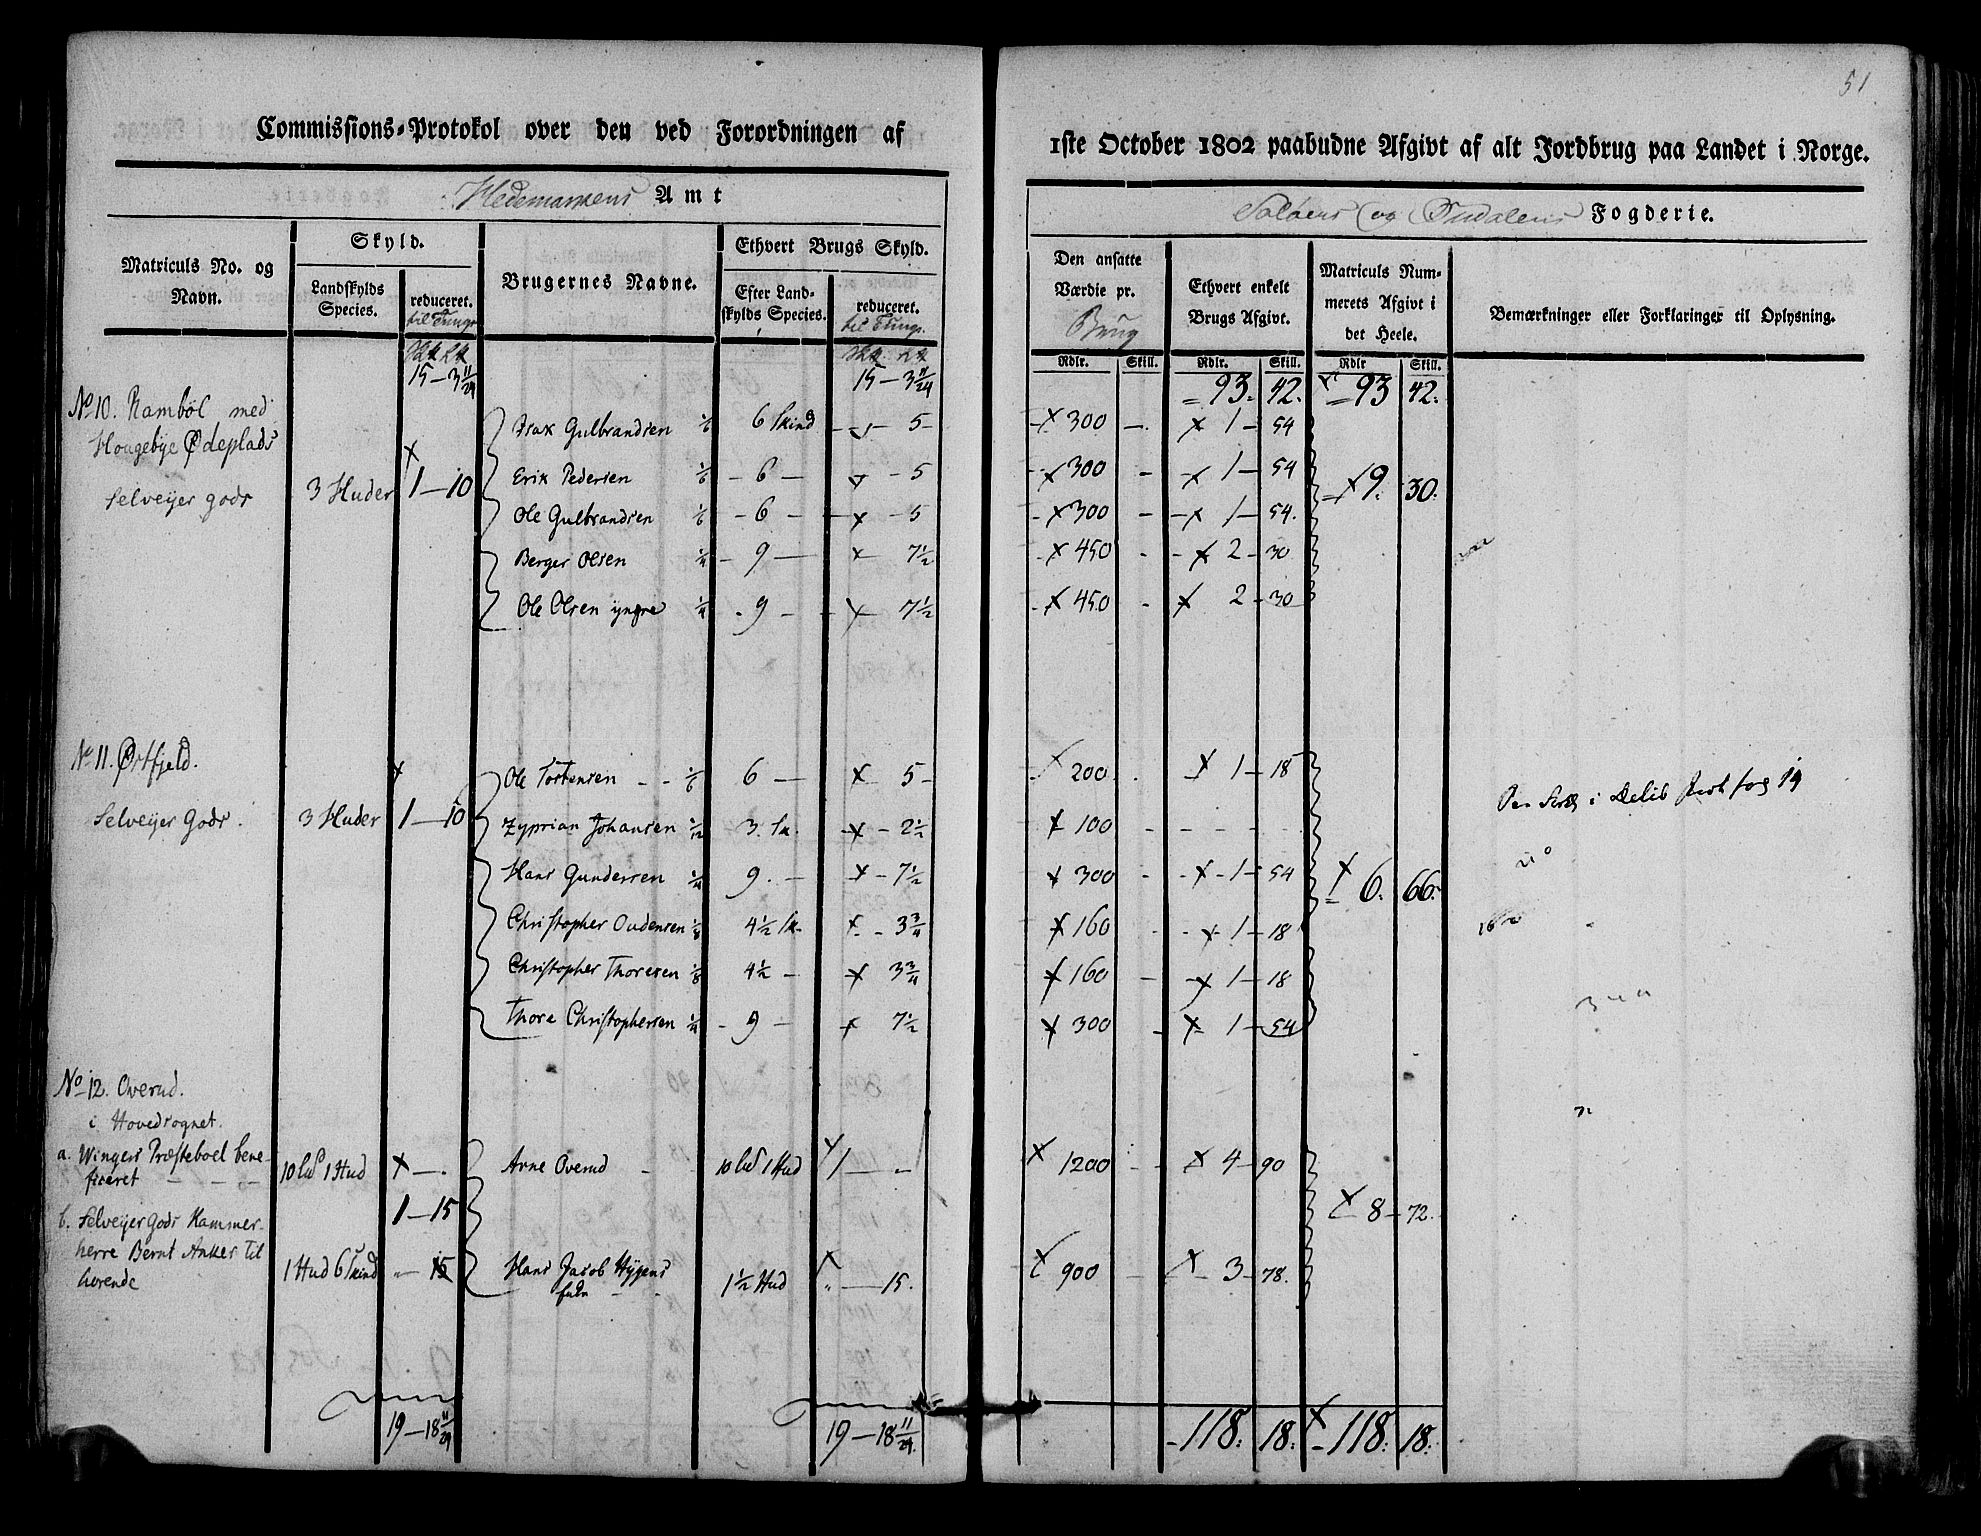 51
Commissions-Protokol over den ved Forordningen af
1ste October 1802 paabudne Afgivt af alt Jordbrug paa Landet i Norge.
Hedemarkens Amt
Soløers og Fogderie.
Matriculs No. og Navn.
Skyld.
Landskylds Species.
reduceret.
til Tunge
Brugernes Navne.
Ethvert Brugs Skyld.
Efter Landskylds Species.
reduceret.
til Tunge.
Den ansatte Værdie pr.
Brug
Ethvert enkelt Brugs Afgivt.
Matriculs Nummerets Afgivt i det Heele.
Bemærkninger eller Forklaringer til Oplysning.
Rdlr. Skill. Rdlr. Skill. Rdlr Skill.
15 — 3 11/24 15 — 3 11/24 93. 42. 93 42.
No 10. Nambøl med
Hougebye Ødeplads
Selveijer gods 3 Huder 1 — 10
Isax Gulbrandsen 1/6 6 Skind 5 300 1 — 54
Erik Pedersen 1/6 6 5 300 1 — 54 9. 30.
Ole Gulbrandsen 1/6 6 5 300 1 — 54.
Berger Olsen 1/4 9 7 1/2 450 2 — 30
Ole Olsen yngre 1/4 9 7 1/2 450 2 — 30
No 11. Østfjeld.
Selveijer Gods. 3 Huder 1 — 10
Ole Tostensen 1/6 6 5 200 1 — 18
Zyprian Johansen 1/12 3. Sk. 2 1/2 100
Hans Gundersen 1/4 9. 7 1/2 300 1 — 54 6. 66.
Christopher Oudensen 1/8 4 1/2 Sk. 3 3/4 160 1 — 18
Christopher Thoresen 1/8 4 1/2 3 3/4 160 1 — 18
Thore Christophersen 1/4 9 7 1/2 300 1 — 54
No 12. Overud.
i Hovedsognet.
a. Wingers Præsteboel bene-
ficeret 10 1 Hud Arne Overud 10 1 Hud 1 1200 4 — 90
1 — 15 8 — 72.
b. Selveijer Gods Kammer-
herre Bernt Anker til
hørende 1 Hud 6 Skind 15 Hans Jacob Hygens 1 1/2 Hud 15. 900 3 — 78.
19 — 18 11/24 19 — 18 11/24. 118. 18. 118. 18.